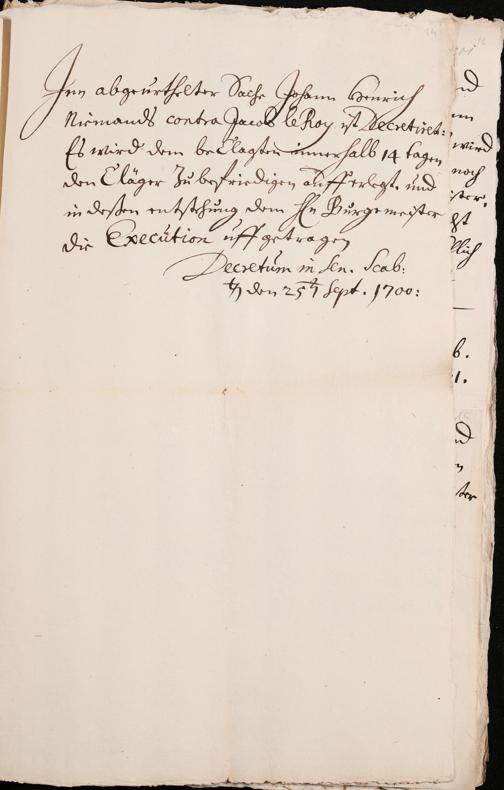 Jnn abgeurthelter Sache Johann Henrich
Niemands contra Jacob le Roy ist Decretiret:
Es wird dem beClagten innerhalb 14 tagen
den Cläger Zu befriedigen aufferlegt. und
in deßen entstehung dem Hn Burgemeister
die Execution uffgetragen
Decretum in Sen. Scab:
den 25t Sept. 1700:
nd
wird
noch
ster.
llich
b.
1.
nd
n
ter